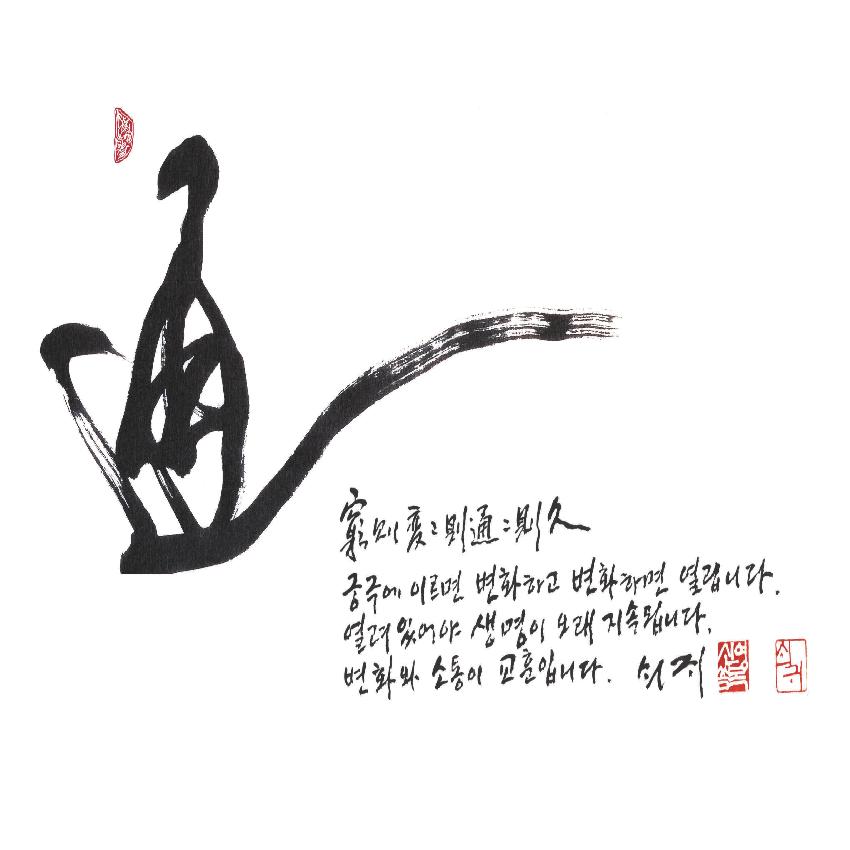 通
窮則変〻則通〻則久
궁극에 이르면 변화하고 변화하면 열립니다.
열려있어야 생명이 오래 지속됩니다.
변화와 소통이 교훈입니다. 쇠귀